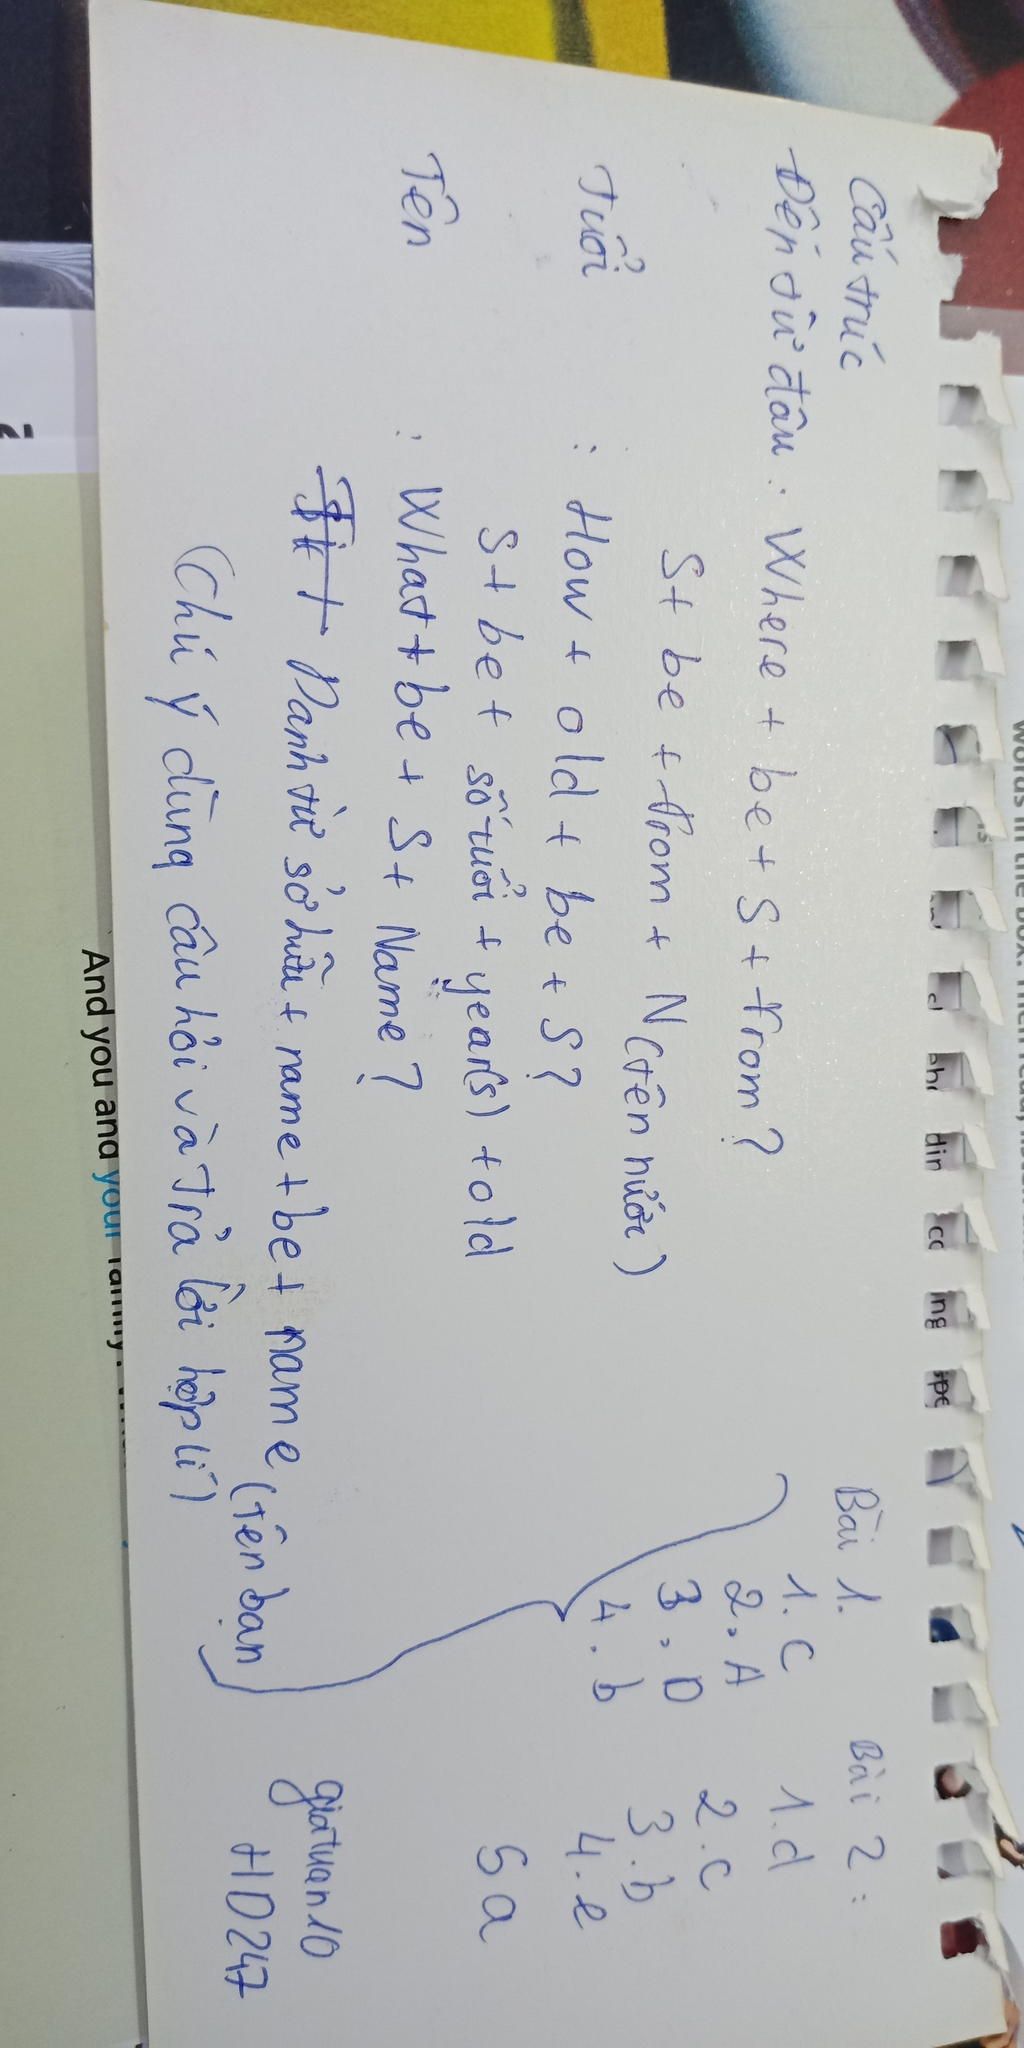 Cấu trúc
Đến từ đâu : Where + be + S + from?
S + be + from + N (tên nước)
Tuổi : How + old + be + S?
S + be + số tuổi + year(s) + old
Tên : What + be + S + Name?
Danh từ sở hữu + name + be + name (tên bạn
(Chú ý dùng câu hỏi và Trả lời hợp lí)
Bài 1.
1. C
2. A
3. D
4. b
Bài 2 :
1. d
2. C
3. b
4. e
5 a
giatuan10
HD247
And you and your family.
words in the box. Then read,
din
cc
ing